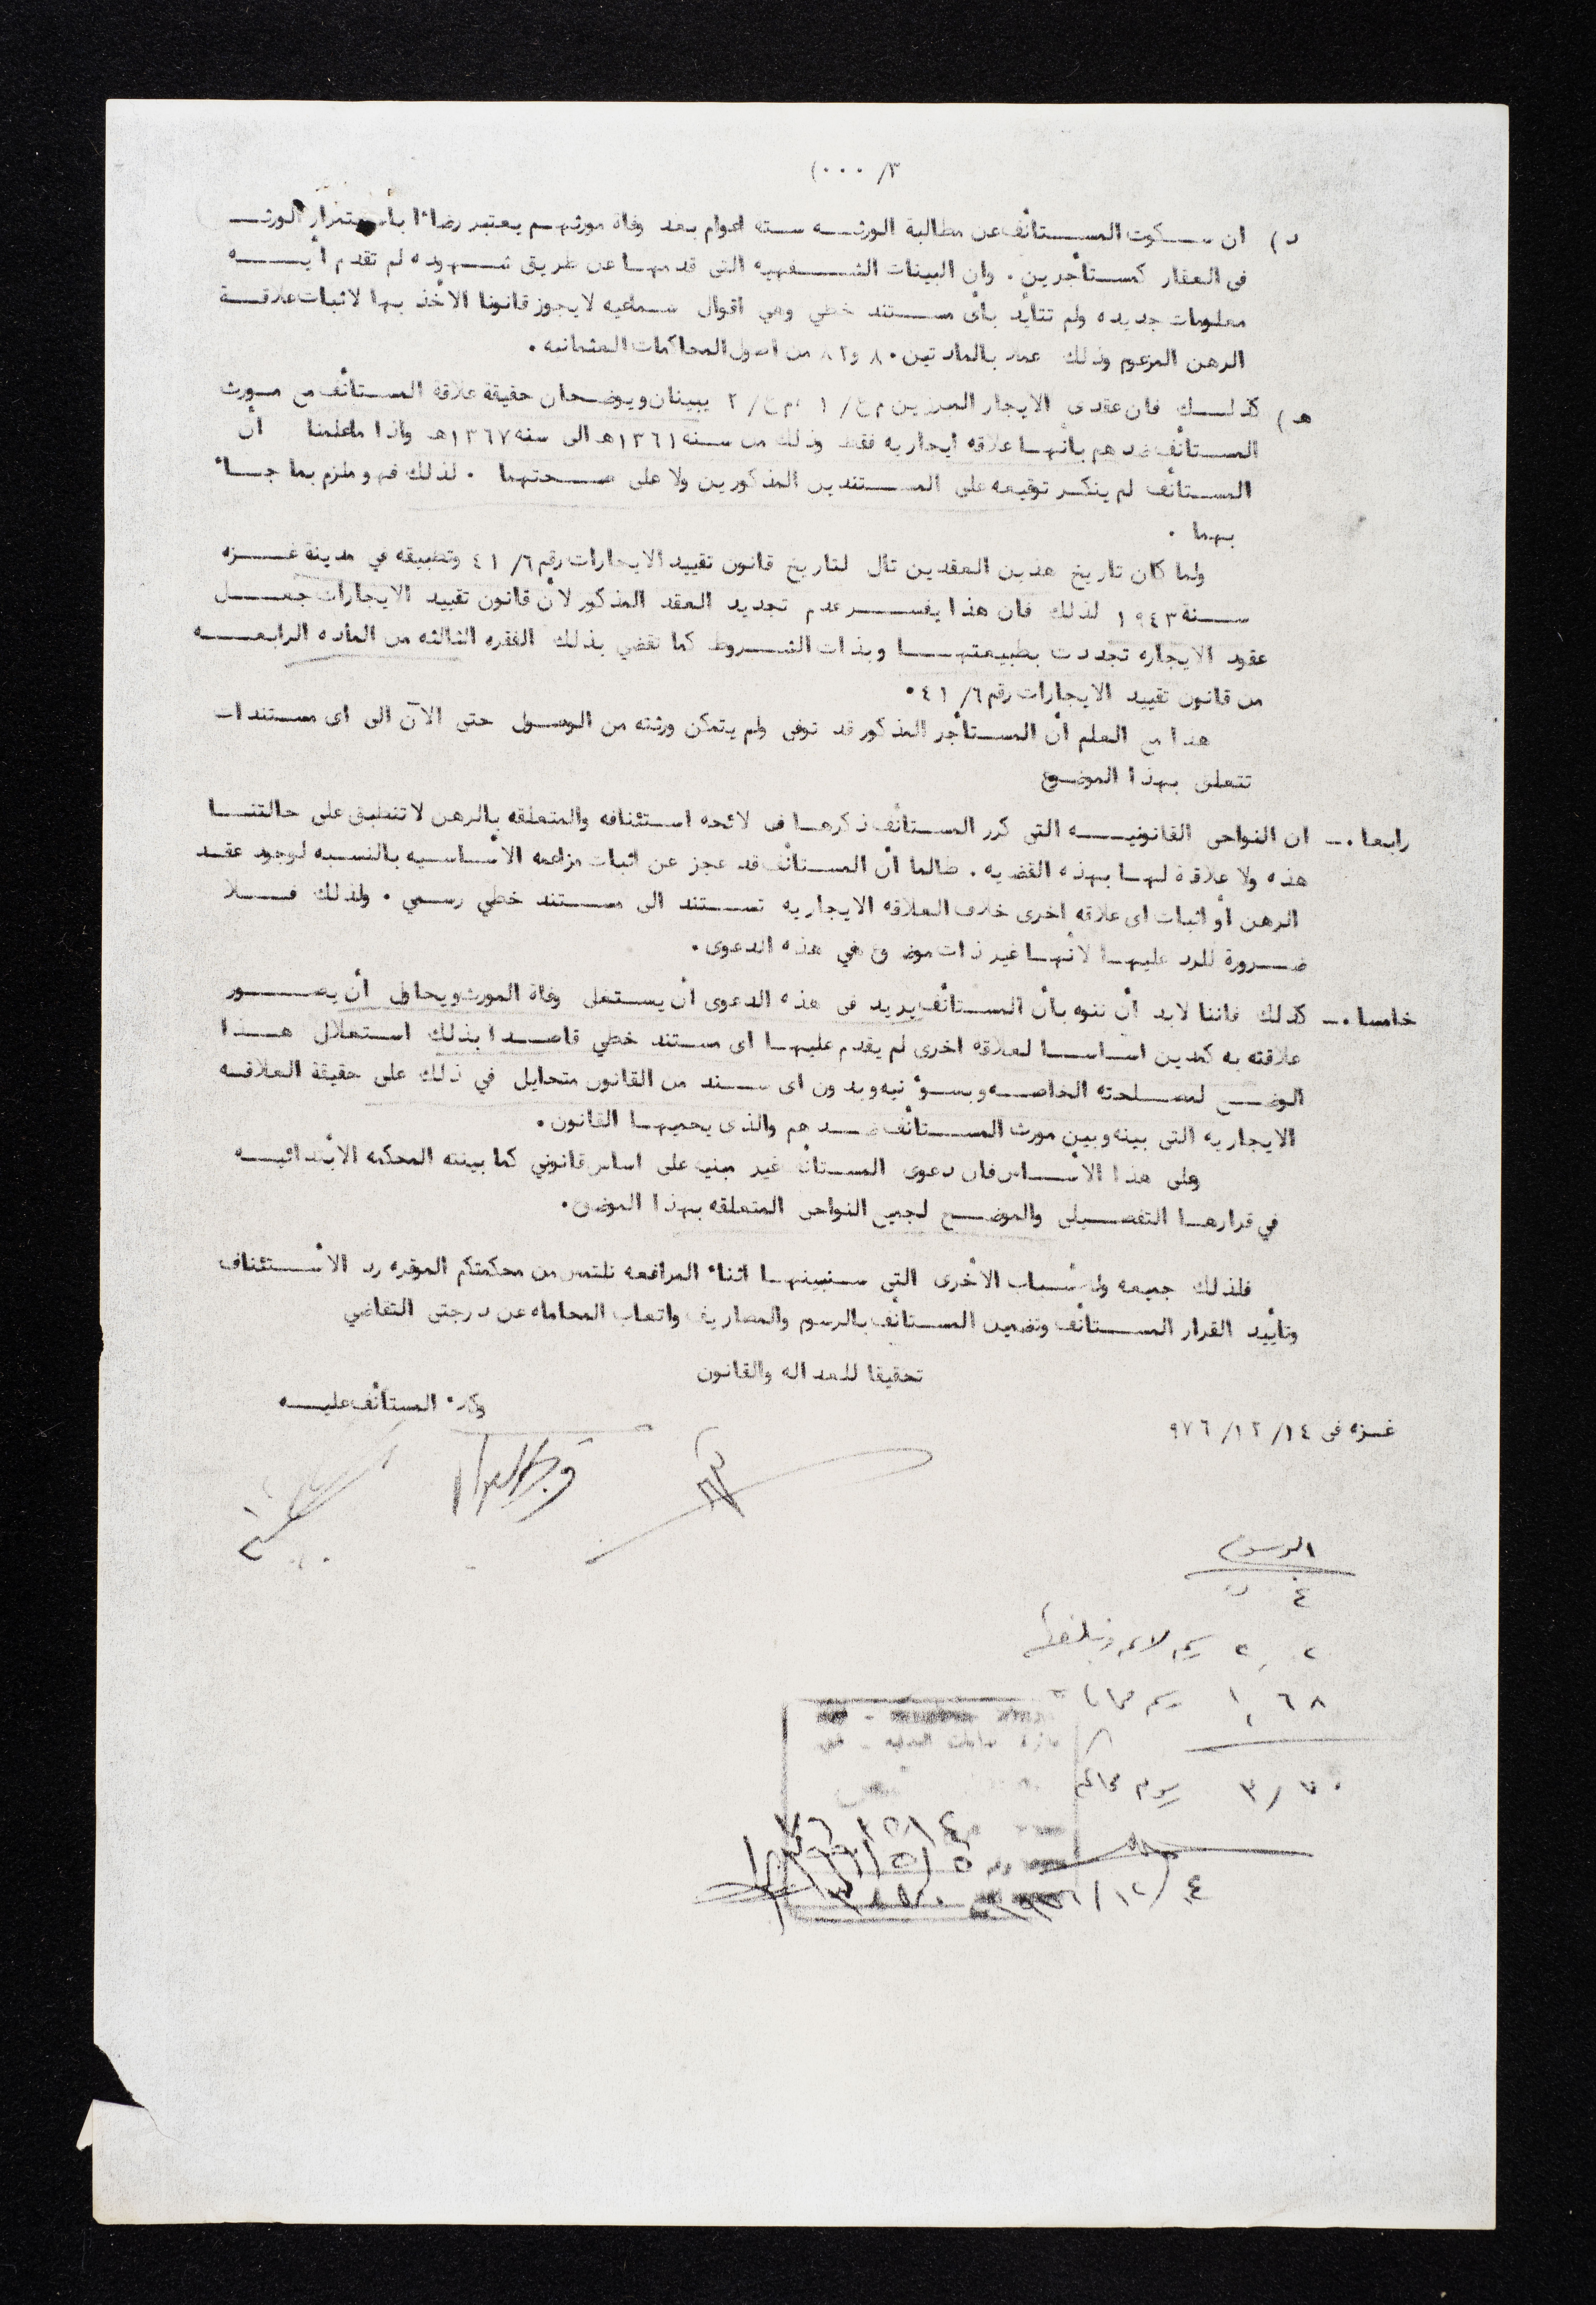 ٣/ ٠٠٠)
د) ان سكوت المستأنف عن مطالبة الورثه سته اعوام بعد وفاة مورثهم يعتبر رضاءا بأستمرار الورثه
فى العقار كمستأجرين . وان البينات الشفهيه التى قدمها عن طريق شهوده لم تقدم أيه
معلومات جديده ولم تتأيد بأى مستند خطي وهي اقوال سماعيه لا يجوز قانونا الأخذ بها لاثبات علاقة
الرهن المزعوم وذلك عملا بالمادتين ٨٠ و ٨٢ من اصول المحاكمات العثمانيه .
هـ) كذلك فان عقدى الايجار المبرزين م ع/ ١ ، م ع/ ٢ يبينان ويوضحان حقيقة علاقة المستأنف مع مورث
المستأنف ضدهم بأنها علاقه ايجاريه فقط وذلك من سنه ١٣٦١هـ الى سنه ١٣٦٧هـ واذا ماعلمنا أن
المستأنف لم ينكر توقيعه على المستندين المذكورين ولا على صحتهما . لذلك فهو ملزم بما جاء
بهما .
ولما كان تاريخ هذين العقدين تال لتاريخ قانون تقييد الايجارات رقم ٦/ ٤١ وتطبيقه في مدينة غزه
سنة ١٩٤٣ لذلك فان هذا يفسر عدم تجديد العقد المذكور لأن قانون تقييد الايجارات جعل
عقود الايجاره تجددت بطبيعتها وبذات الشروط كما تقضي بذلك الفقره الثالثه من الماده الرابعه
من قانون تقييد الايجارات رقم ٦/ ٤١ .
هذا مع العلم أن المستأجر المذكور قد توفى ولم يتمكن ورثته من الوصول حتى الآن الى اى مستندات
تتعلق بهذا الموضوع
رابعا .ـ ان النواحى القانونيه التى كرر المستأنف ذكرها فى لائحه استئنافه والمتعلقه بالرهن لا تنطبق على حالتنا
هذه ولا علاقة لها بهذه القضيه . طالما أن المستأنف قد عجز عن اثبات مزاعمه الأساسيه بالنسبه لوجود عقد
الرهن أو اثبات اى علاقه اخرى خلاف العلاقه الايجاريه تستند الى مستند خطي رسمي . ولذلك فلا
ضرورة للرد عليها لأنها غير ذات موضوع في هذه الدعوى .
خامسا .ـ كذلك فاننا لابد أن ننوه بأن المستأنف يريد فى هذه الدعوى أن يستغل وفاة المورث ويحاول أن يصور
علاقته به كمدين اساسا لعلاقه اخرى لم يقدم عليها اى مستند خطي قاصدا بذلك استغلال هذا
الوضع لمصلحته الخاصه وبسوء نيه وبدون اى سند من القانون متحايل في ذلك على حقيقة العلاقه
الايجاريه التى بينه وبين مورث المستأنف ضدهم والذى يحميها القانون .
وعلى هذا الأساس فان دعوى المستأنف غير مبنيه على اساس قانوني كما بينته المحكمه الأبتدائيه
في قرارها التفصيلى والموضح لجميع النواحى المتعلقه بهذا الموضوع .
فلذلك جميعه وللأسباب الأخرى التى سنبينها اثناء المرافعه نلتمس من محكمتكم الموقره رد الأستئناف
وتأييد القرار المستأنف وتضمين المستأنف بالرسوم والمصاريف واتعاب المحاماه عن درجتى التقاضي
تحقيقا للعداله والقانون
وكلاء المستأنف عليه
غزه فى ١٤/ ١٢/ ٩٧٦
الرسوم
١,٦٨ رسم محاماة
٣/٧٠ رسوم محاكم